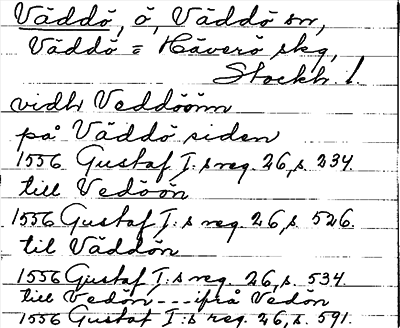 Väddö, ö, Väddö sn,
Väddö = Häverö skg,
Stockh. l.
vidh Veddööm
på Väddö siden
1556 Gustaf I:s reg. 26, s. 234.
till Vedöön
1556 Gustaf I:s reg. 26, s. 526.
til Väddön
1556 Gustaf I:s reg. 26, s. 534.
till Vedön --- ifrå Vedön
1556 Gustaf I:s reg. 26, s. 591.